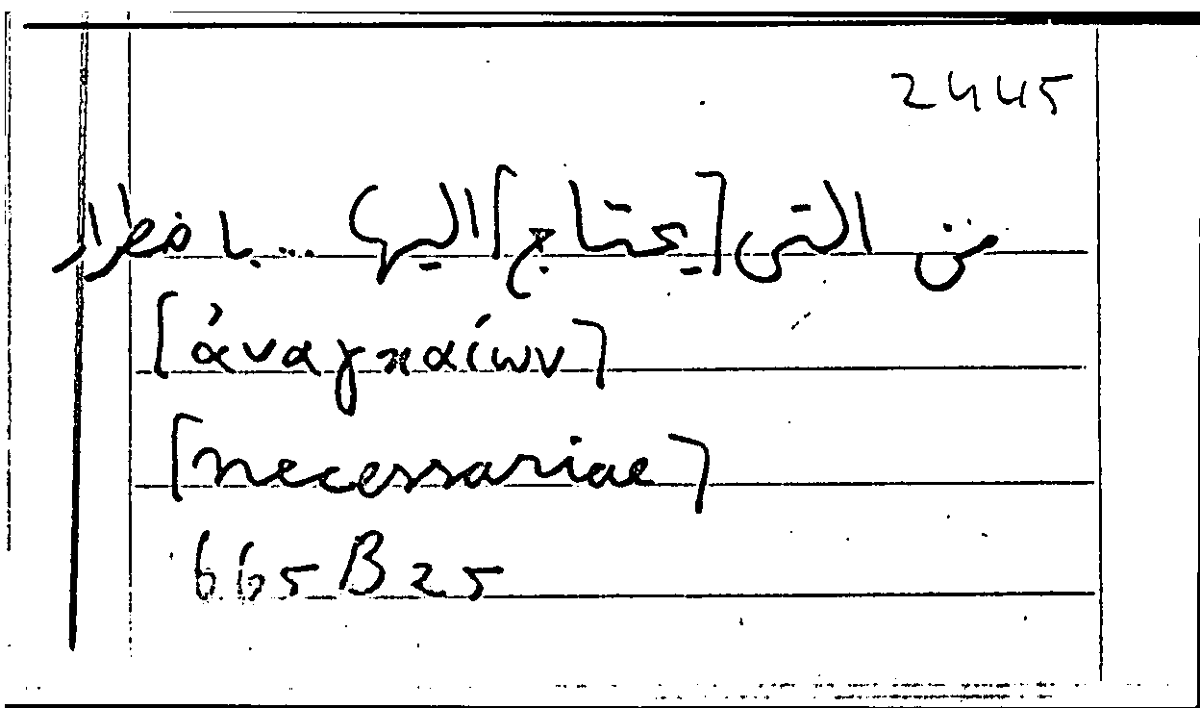 2445
من التى [يحتاج] اليها ... باضطرار
[ἀναγκαίων]
[necessariae]
665 B 25